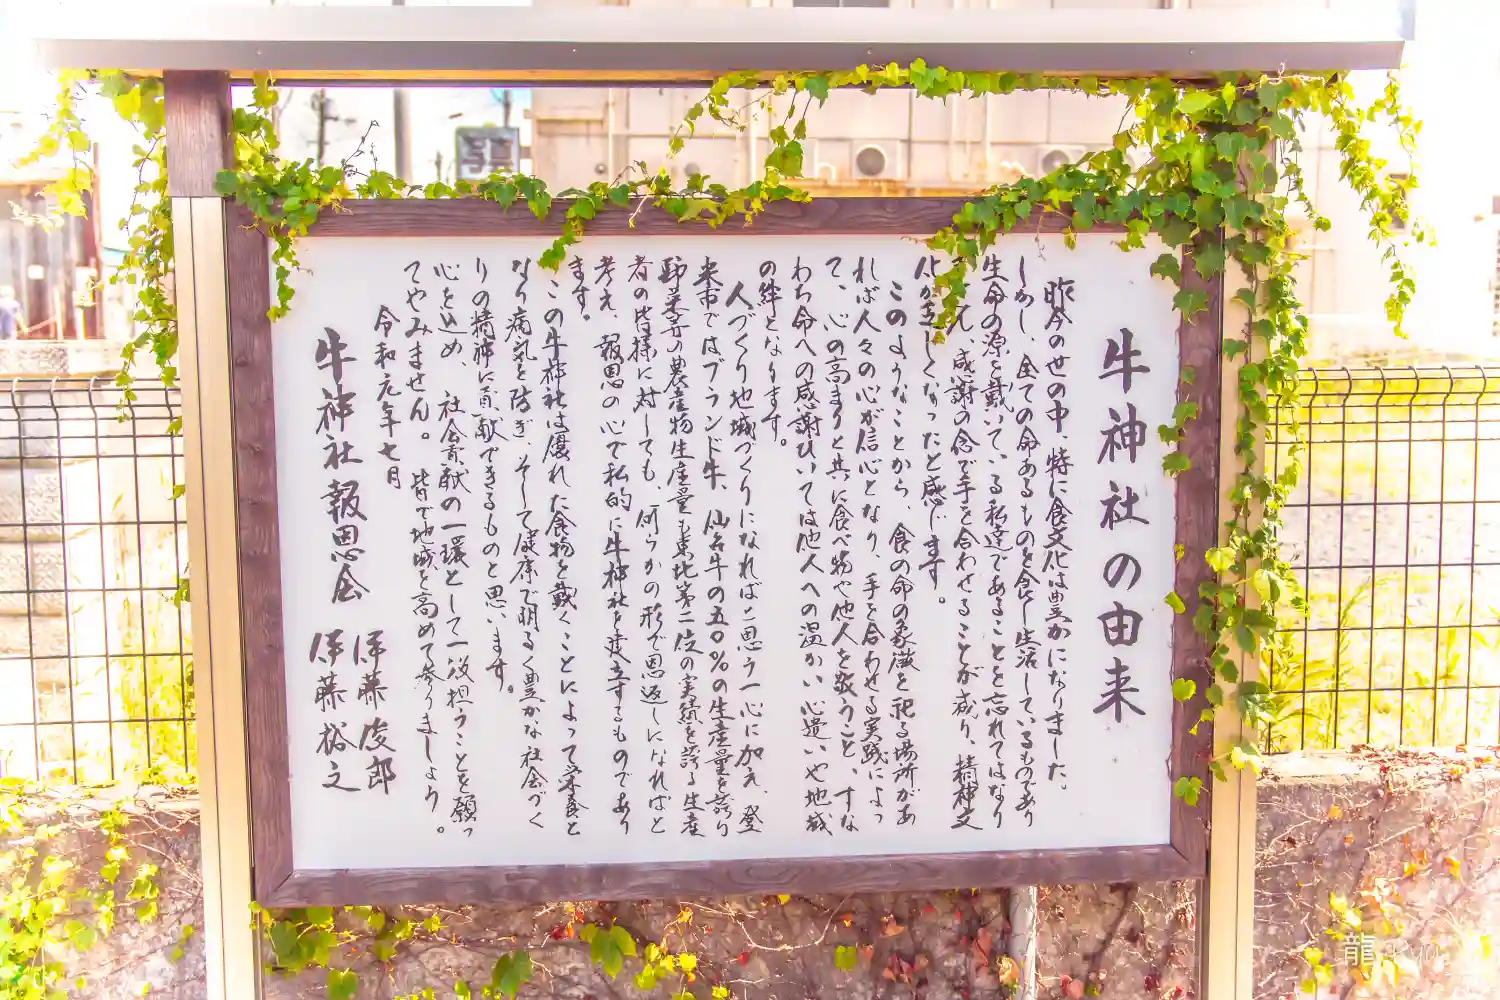 牛神社の由来
昨今の世の中、特に食文化は豊かになりました。
しかし、全ての命あるものを食し生活しているものであり
生命の源を戴いている私達であることを忘れてはなり
ん、感謝の念で手を合わせることが減り、精神文
化が乏しくなったと感じます。
このようなことから、食の命の象徴を祀る場所があ
れば人々の心が信心となり、手を合わせる実践によっ
て、心の高まりと共に食べ物や他人を敬うこと、すな
わち命への感謝ひいては他人への温かい心遣いや地域
の絆となります。
人づくり地域づくりになればと思う一心に加え、登
米市ではブランド牛、仙台牛の五〇%の生産量を誇り
野菜等の農産物生産量も東北第二位の実績を誇る生産
者の皆様に対しても、何らかの形で恩返しになればと
考え、報恩の心で私的に牛神社を建立するものであり
ます。
この牛神社は優れた食物を戴くことによって栄養と
なり病気を防ぎ、そして健康で明るく豊かな社会づく
りの精神に貢献できるものと思います。
心を込め、社会貢献の一環として一役担うことを願っ
てやみません。皆で地域を高めて参りましょう。
令和元年七月
牛神社報恩会 伊藤俊郎
伊藤裕之
龍 Ryu